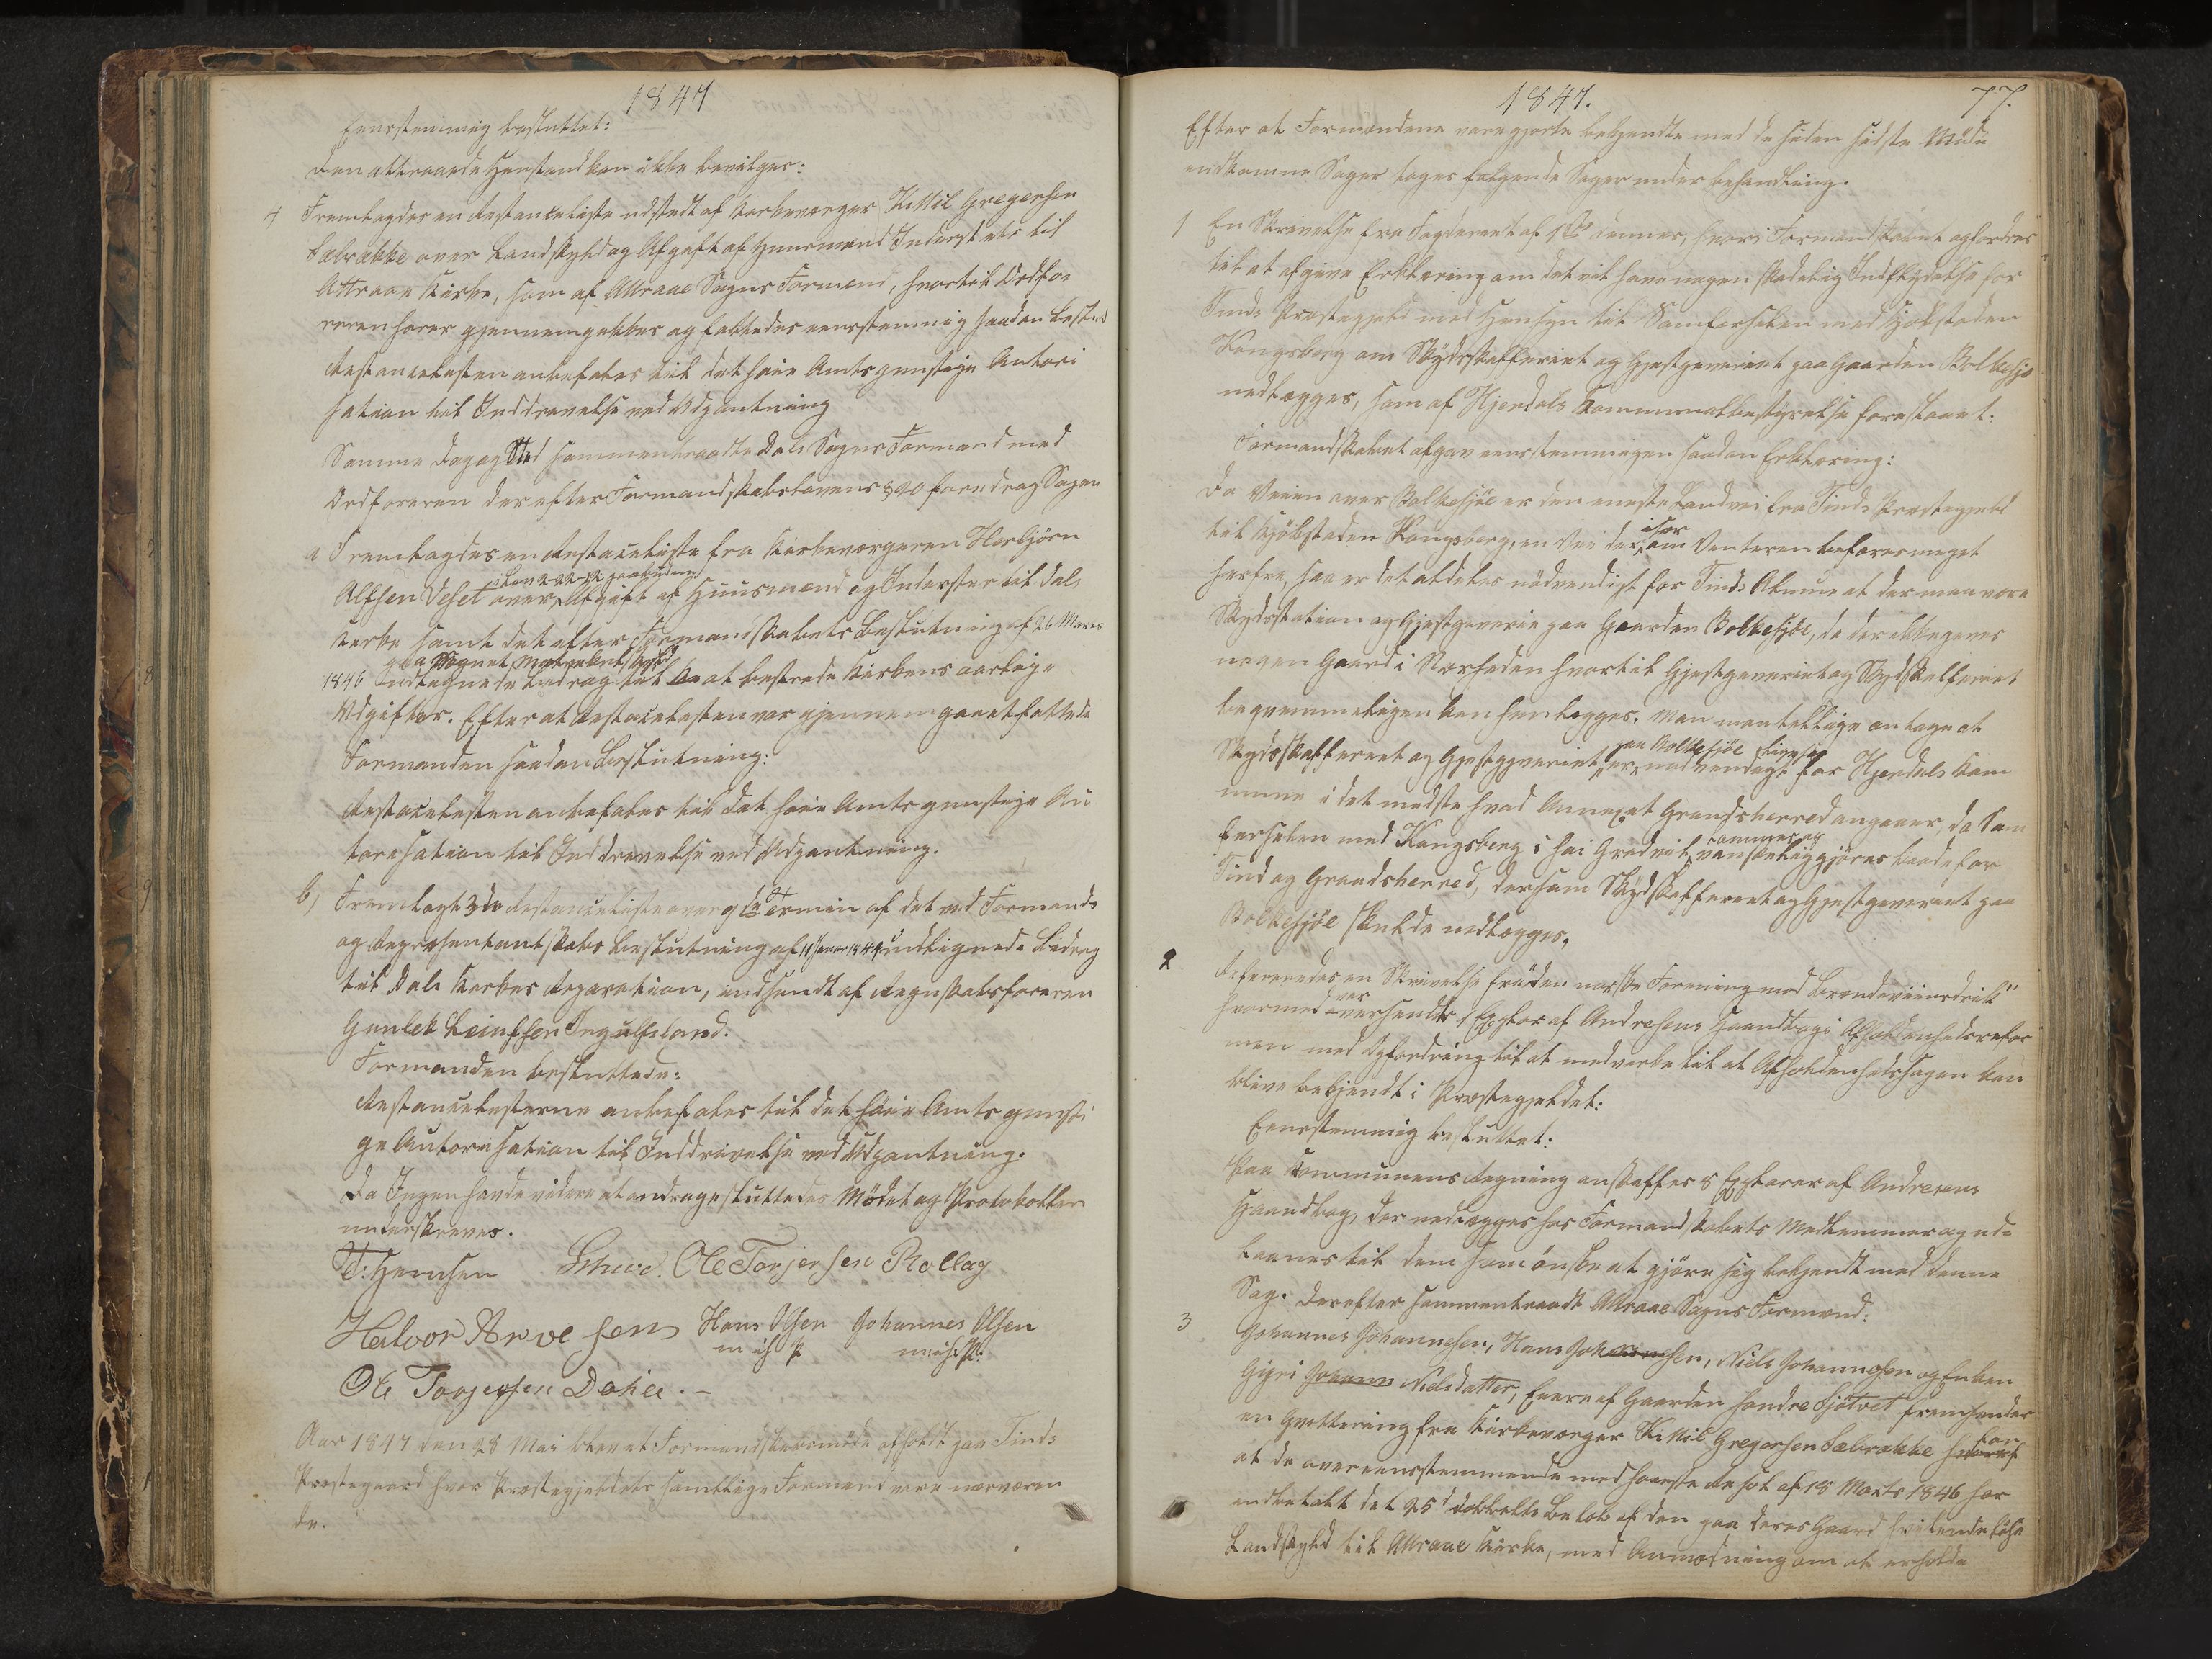 1847
Eenstemmig besluttet:
Den attraaede Henstand kan ikke bevilges:
4 Fremlagdes en Restanceliste udstedt af Kirkeværger Kittil Gregersen
Bakrække over Landskyld og Afgift af Huusmænd Inderst etc til
Attraae Kirke, som af Attraae Sogns Formænd, hvortil Ordfø-
reren hører gjennemgikkes og fattedes eenstemmig saadan Beslutn
Restancelisten anbefales til det høie Amts gunstige Autori
sation til Inddrivelse ved Udpantning
Samme Dag og Sted sammentraadte Dals Sogns Formænd med
Ordføreren der efter Formandskabslovens § 20 foredrog Sagen
a Fremlagdes en Restanceliste fra Kirkeværgeren Herbjörn
Alfsen Veset over Afgift af Huusmænd og Inderster til Dals
Kirke samt det efter Formandskabets Beslutning af 26 Marts
paa Sognets Matrikulskyld
1846 udlignede Bidrag til at bestride Kirkens aarlige
Udgifter. Efter at Restancelisten var gjennemgaaet fattede
Formanden saadan Beslutning:
Restancelisten anbefales til det høie Amts gunstige Au
torisation til Inddrivelse ved Udpantning.
b) Fremlagt 3de Restanceliste over Termin af det ved Formands
og Repræsentantskabs Beslutning af udlignede Bidrag
til Dals Kirkes Reparation, indsendt af Regnskabsføreren
Gunlek Leinssen Ingulfsland:
Formanden besluttede:
Restancelisterne anbefales til det høie Amts gunsti
ge Autorisation til Inddrivelse ved Udpantning.
Da Ingen havde videre at andrage sluttedes Mödet og Protokollen
underskreves.
T: Hensen Schive. Ole Torjersen Rollag
Halvor Arvesen Hans Olsen Johannes Olsen
m i h P m i h P.
Ole Torjersen Dahle. –
Aar 1847 den 28 Mai blev et Formandskabsmöde afholdt paa Tinds
Præstegaard hvor Præstegjeldets samtlige Formænd vare nærværen
de.
1847. 77.
Efter at Formændene vare gjorte bekjendte med de siden sidste Möde
indkomne Sager toges følgende Sager under Behandling.
1 En Skrivelse fra Fogderiet af dennes, hvori Formandskabet opfordres
til at afgive Erklæring om det vil have nogen skadelig Indflydelse for
Tinds Præstegjeld med Hensyn til Samferselen med Kjøbstaden
Kongsberg om Skydsskafferiet og Gjestgiveriet paa Gaarden Bolkesjø
nedlægges, som af Hjerdals Kommunalbestyrelse foreslaaet:
Formandskabet afgav eenstemmigen saadan Erklæring:
Da Veien over Bolkesjöe er den eneste Landvei fra Tinds Præstegjeld
til Kjöbstaden Kongsberg, en Vei der især om Vinteren befares meget
herfra, saa er det aldeles nödvendigt for Tinds Almue at der maa være
Skydsstation og Gjestgiverie paa Gaarden Bolkesjöe, da der ikke gives
nogen Gaard i Nærheden hvortil Gjestgiveriet og Skydsskafferiet
beqvemmeligen kan henlægges. Man maa tillige antage at
paa Bolkesjöe ligesaa
Skydsskafferiet og Gjestgiveriet er nødvendigt for Hjerdals Kom
mune i det mindste hvad Annexet Grandsherred angaaer, da Sam
ferselen med Kongsberg i høi Grad vil vanskeliggjøres baade for
Tind og Grandsherred, dersom Skydsskafferiet og Gjestgiveriet paa
Bolkesjöe skulde nedlægges.
2 Refereredes en Skrivelse fra „den norske Forening mod Brændeviinsdrik"
hvormed var oversendt 1 Explar af Andresens Haandbog i Afholdenhedsrefor
men med Opfordring til at medvirke til at Afholdenhedssagen kan
blive bekjendt i Præstegjeldet:
Eenstemmig besluttet:
Paa Communens Regning anskaffes 8 Explarer af Andresens
Haandbog, der nedlægges hos Formandskabets Medlemmer og ud-
laanes til dem som önske at gjöre sig bekjendt med denne
Sag. Derefter sammentraadte Attraae Sogns Formænd:
3 Johannes Johannesen, Hans Johannesen, Niels Johannesen og Enken
Gigri Johanns Nielsdatter, Eiere af Gaarden Søndre Sjötvet fremsender
en Qvittering fra Kirkeværger Kittil Gregersen Bakrække for
at de overeensstemmende med høieste Resol af 18 Marts 1846 har
indbetalt det 25d dobbelte Beløb af den paa deres Gaard hvilende
Landskyld til Attraae Kirke, med Anmodning om at erholde